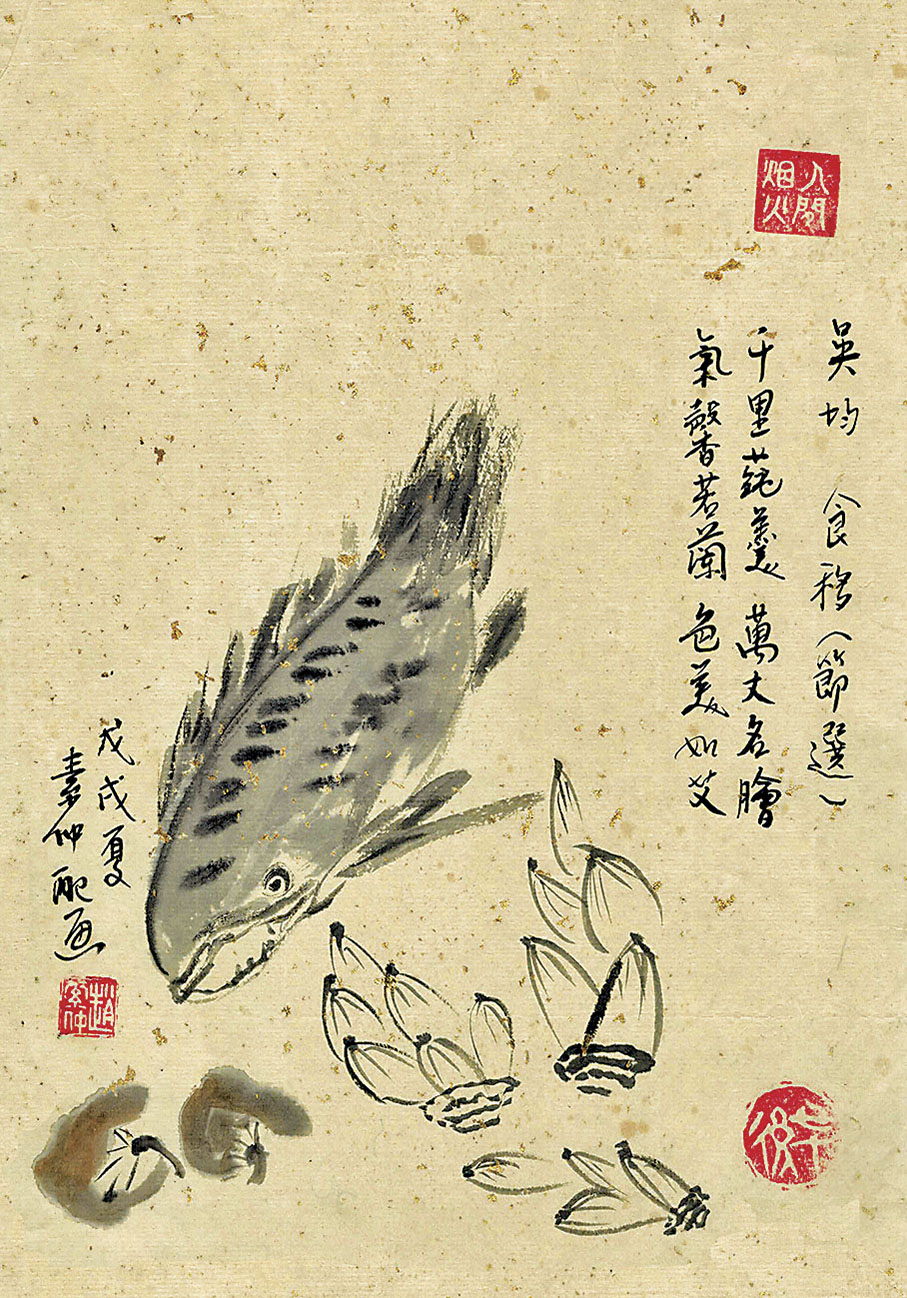 人間
烟火
吳均 食移（節選）
千里蒓羹 萬丈名膾
氣馨若蘭 色美如艾
戊戌夏
素仲配画
趙素仲